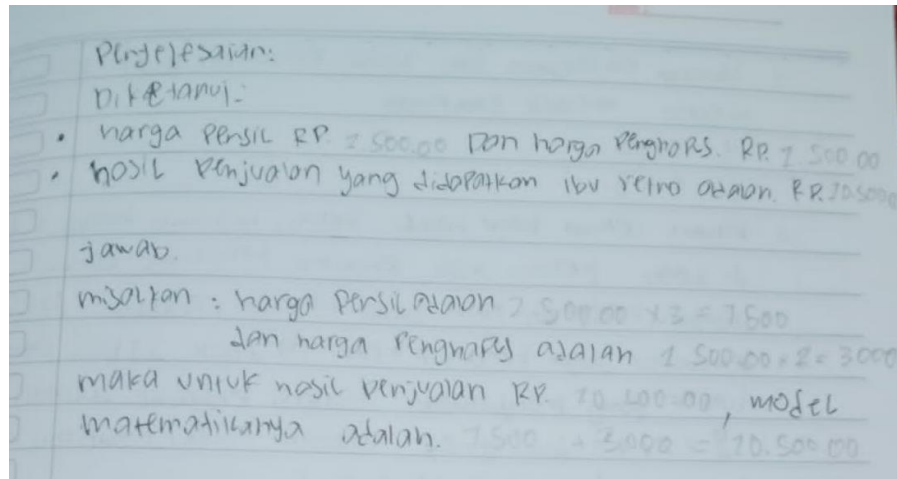 Penyelesaian:
Diketahui:
• harga Pensil RP. 2 500.00 Dan harga Penghapus. RP. 1 500 00
• hasil Penjualan yang didapatkan ibu retno adalah. RP. 10.5000
jawab.
misalkan : harga Pensil adalah 2 500.00 x 3 = 7500
dan harga Penghapus adalah 1 500.00 x 2 = 3000
maka untuk hasil Penjualan RP. 10 500.00, model
matematikanya adalah. 7500 + 3000 = 10.500 00